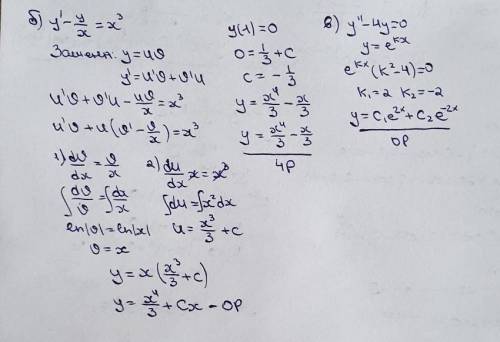 б) y' - y/x = x³
Замена: y = uϑ
y' = u'ϑ + ϑ'u
u'ϑ + ϑ'u - uϑ/x = x³
u'ϑ + u(ϑ' - ϑ/x) = x³
1) dϑ/dx = ϑ/x
∫dϑ/ϑ = ∫dx/x
ln|ϑ| = ln|x|
ϑ = x
2) du/dx x = x³
∫du = ∫x²dx
u = x³/3 + c
y = x(x³/3 + c)
y = x⁴/3 + Cx - OP
y(1) = 0
0 = 1/3 + c
c = -1/3
y = x⁴/3 - x/3
y = x⁴/3 - x/3
ЧР
в) y'' - 4y = 0
y = e^(kx)
e^(kx)(k² - 4) = 0
k₁ = 2 k₂ = -2
y = C₁e^(2x) + C₂e^(-2x)
OP